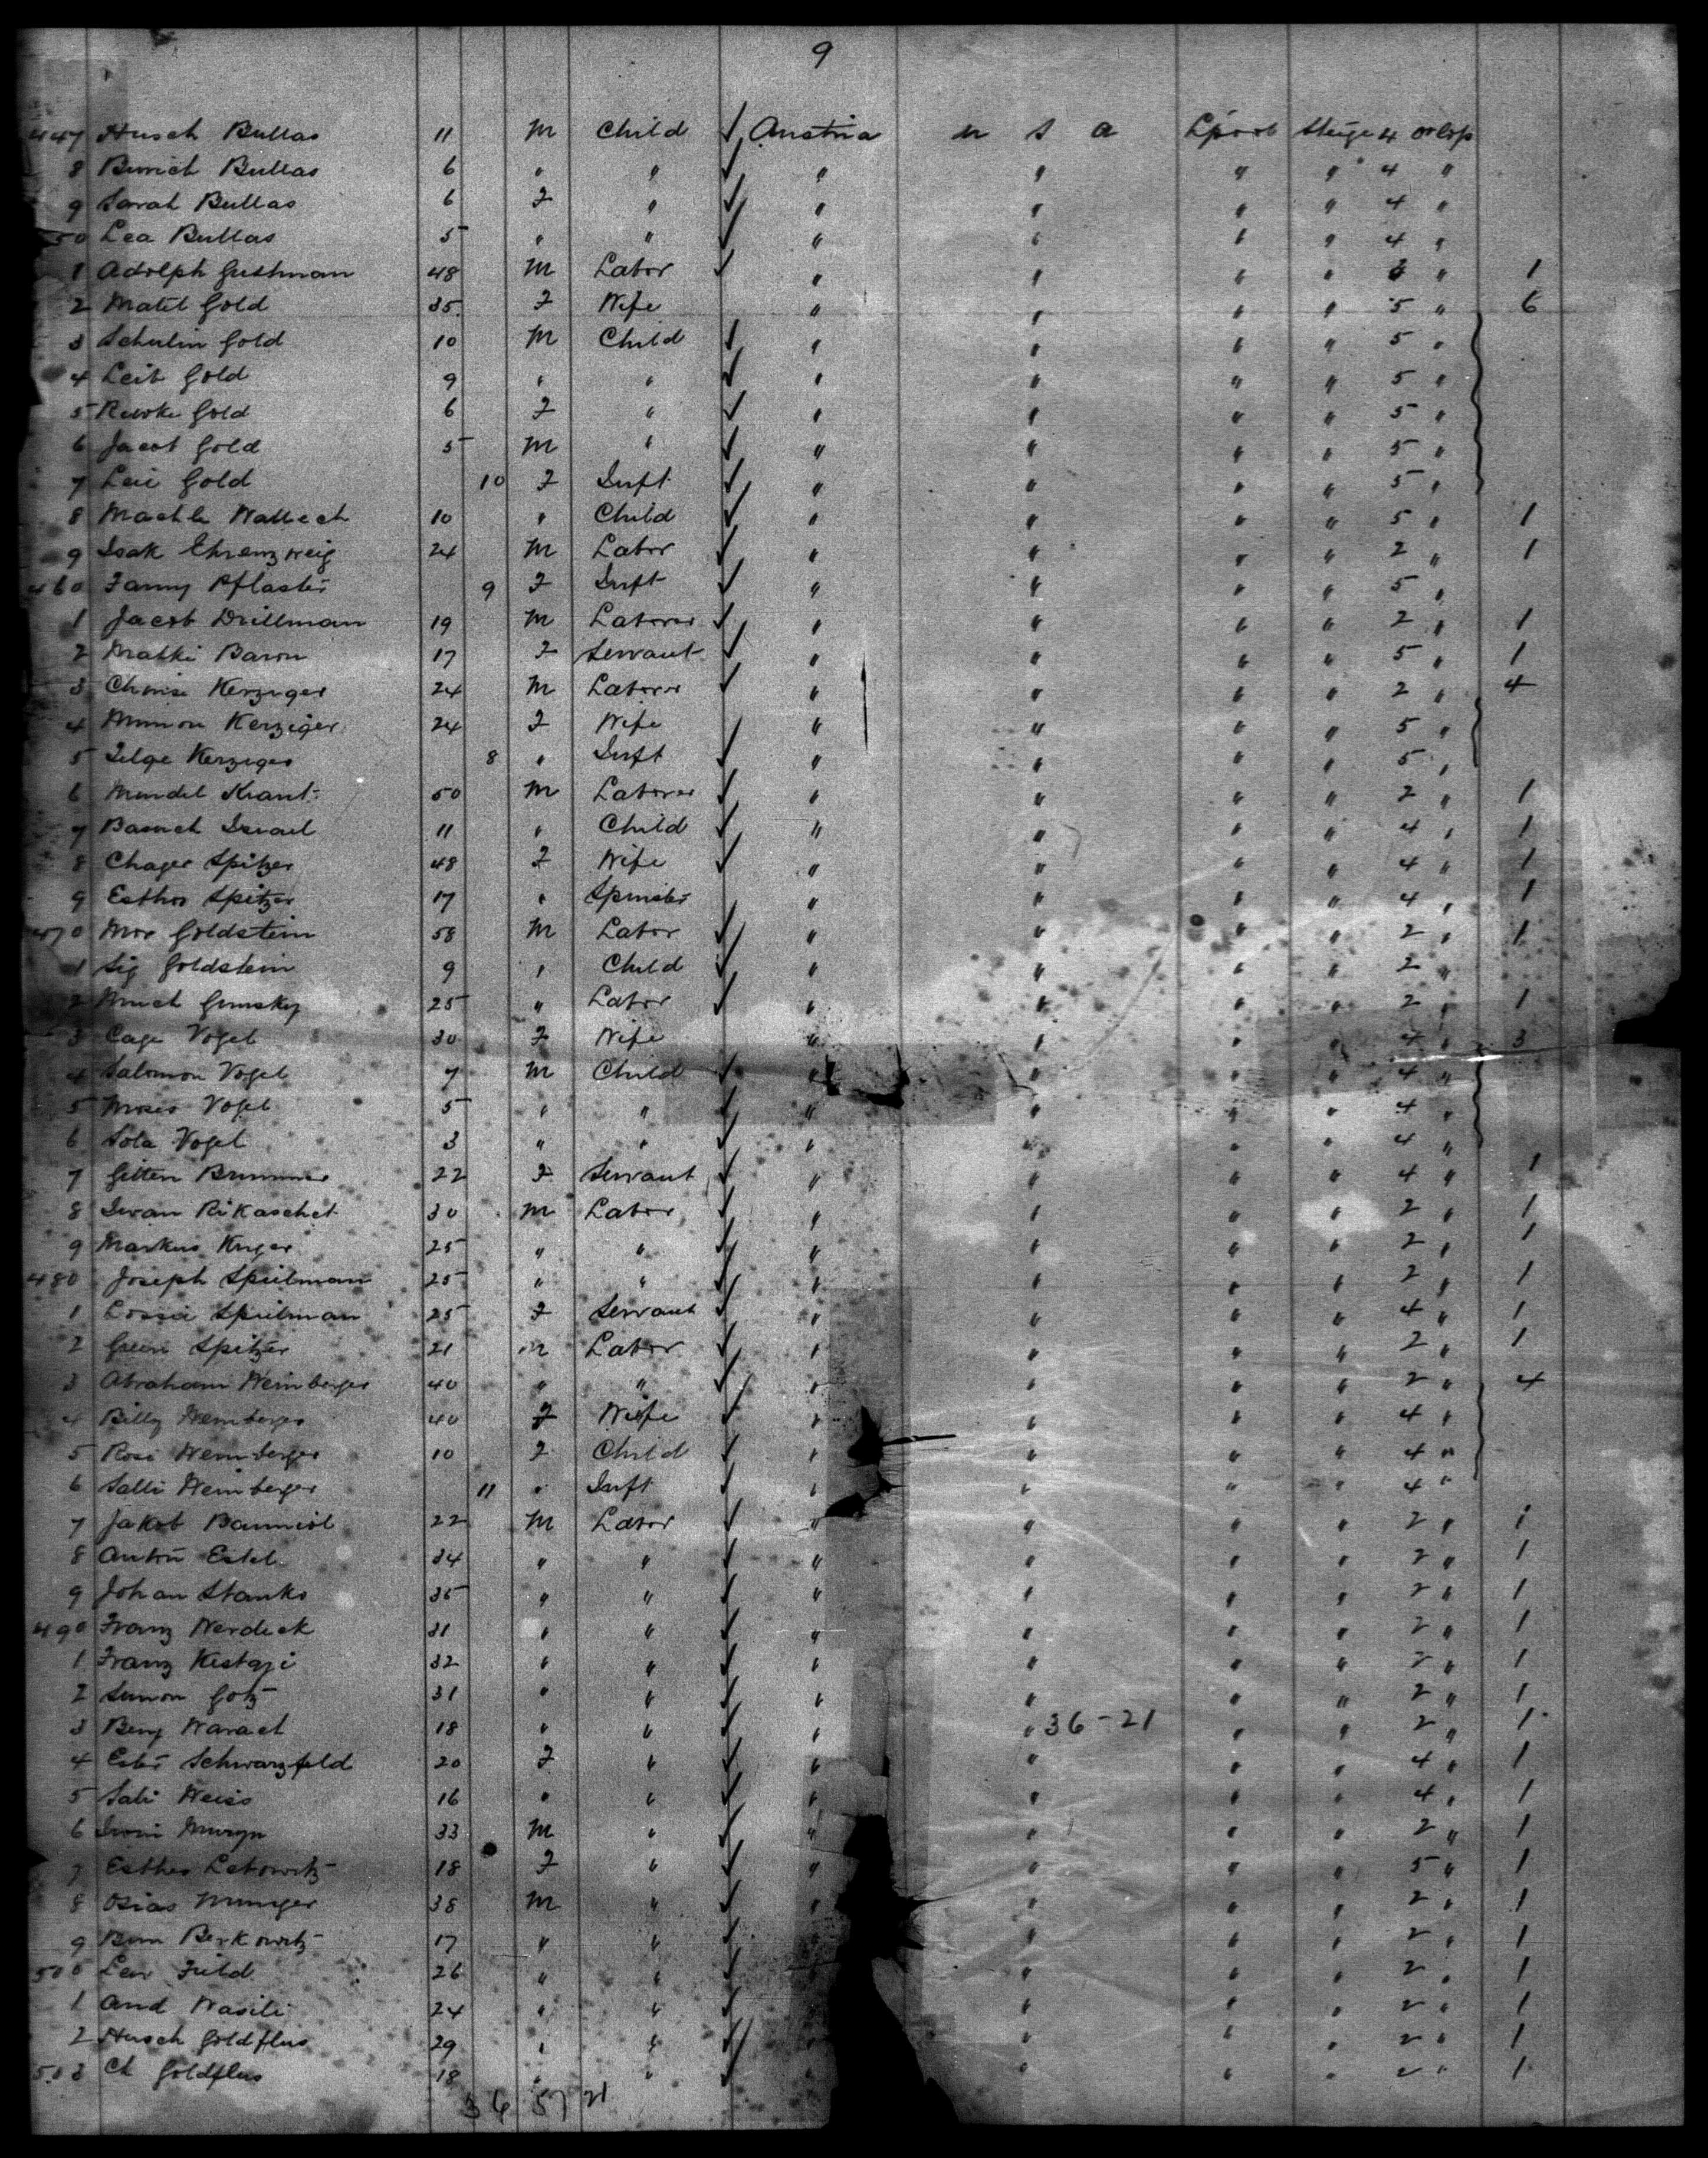 9
447 Husch Bullas 11 M Child ✓ Austria u s a L'pool Steige 4 orlop
8 Burich Bullas 6 " " ✓ " " " " 4 "
9 Sarah Bullas 6 F " ✓ " " " " 4 "
50 Lea Bullas 5 " " ✓ " " " " 4 "
1 Adolph Guthman 48 M Labor ✓ " " " " 3 " 1
2 Matel Gold 35 F Wife " " " " 5 " 6
3 Schulim Gold 10 M Child ✓ " " " " 5 "
4 Leib Gold 9 " " ✓ " " " " 5 "
5 Rewke Gold 6 F " ✓ " " " " 5 "
6 Jacob Gold 5 M " ✓ " " " " 5 "
7 Leie Gold 10 F Inft ✓ " " " " 5 "
8 Machle Wallach 10 " Child ✓ " " " " 5 " 1
9 Isak Ehrenzweig 24 M Labor ✓ " " " " 2 " 1
460 Fanny Pflaster 9 F Inft ✓ " " " " 5 "
1 Jacob Drillman 19 M Laborer ✓ " " " " 2 " 1
2 Matki Baron 17 F Servant ✓ " " " " 5 " 1
3 Kerziger 24 M Laborer ✓ " " " " 2 " 4
4 Mimon Kerziger 24 F Wife " " " " 5 "
5 Kerziger 8 " Inft ✓ " " " " 5 "
6 Mendel Kraut 50 M Laborer ✓ " " " " 2 " 1
7 Baruch Israel 11 " Child ✓ " " " " 4 " 1
8 Chager Spitzer 48 F Wife ✓ " " " " 4 " 1
9 Esther Spitzer 17 " Spinster " " " " 4 " 1
470 Mor Goldstein 58 M Labor ✓ " " " " 2 " 1
1 Sig Goldstein 9 " Child ✓ " " " " 2 "
2 25 " Labor ✓ " " " " 2 " 1
3 Cage Vogel 30 F Wife " " " " 4 " 3
4 Salomon Vogel 7 M Child ✓ " " " " 4 "
5 Moses Vogel 5 " " ✓ " " " " 4 "
6 Sola Vogel 3 " " ✓ " " " " 4 "
7 Gitten Brummer 22 F Servant ✓ " " " " 4 " 1
8 Iwan Rikaschet 30 M Labor ✓ " " " " 2 " 1
9 Markus Kruger 25 " " ✓ " " " " 2 " 1
480 Joseph Spielman 25 " " ✓ " " " " 2 " 1
1 Spielman 25 F Servant ✓ " " " " 4 " 1
2 Spitzer 21 M Labor ✓ " " " " 2 " 1
3 Abraham Weinberger 40 " " ✓ " " " " 2 " 4
4 Billy Weinberger 40 F Wife ✓ " " " " 4 "
5 Rosi Weinberger 10 F Child ✓ " " " " 4 "
6 Salli Weinberger 11 " Inft ✓ " " " " 4 "
7 Jakob 22 M Labor ✓ " " " " 2 " 1
8 Anton Estel 34 " " ✓ " " " " 2 " 1
9 Johan Stanko 35 " " ✓ " " " " 2 " 1
490 Franz Werdeck 31 " " ✓ " " " " 2 " 1
1 Franz 32 " " ✓ " " " " 2 " 1
2 Simon Gotz 31 " " ✓ " " " " 2 " 1
3 Benj 18 " " ✓ " " 36-21 " " 2 " 1
4 Ester Schwarzfeld 20 F " ✓ " " " " 4 " 1
5 Sali Weiss 16 " " ✓ " " " " 4 " 1
6 33 M " ✓ " " " " 2 " 1
7 Esther Lebowitz 18 F " ✓ " " " " 5 " 1
8 Osias Munger 38 M " ✓ " " " " 2 " 1
9 Berkowitz 17 " " ✓ " " " " 2 " 1
500 26 " " ✓ " " " " 2 " 1
1 And Wasili 24 " " ✓ " " " " 2 " 1
2 Husch Goldflus 29 " " ✓ " " " " 2 " 1
503 Ch Goldflus 18 " " ✓ " " " 2 " 1
36 57 21